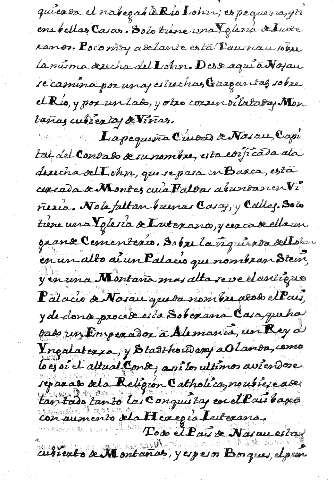 quierda el nabegable Rio Lohn; es pequeña, y ti
ene bellas Casas. Solo tiene una Yglesia de Lute
ranos. Poco mas adelante está Taunau sobre
la misma derecha del Lohn. Desde aqui à Nasau
se camina por unas estrechas Gargantas sobre
el Rio, y por un lado, y otro corren dilatadas Mon
tañas cubiertas de Viñas.
La pequeña Ciudad de Nasau, Capi
tal del Condado de su nombre, esta edificada ala
derecha del Lohn, que se pasa en Barca, está
cercada de Montes cuia Faldas abundan en Vi
ñeria. No le faltan buenas Casas, y Calles. Solo
tiene una Yglesia de Luterano, y cerca de ella un
grande Cementerio. Sobre la yzquierda del Lohn
en un alto ai un Palacio que nombran Stein,
y en una Montaña mas alta se ve el antiguo
Palacio de Nasau que da nombre à todo el Pais,
y de donde procede esta Soberana Casa, que ha
dado un Emperador à Alemania, un Rey à
Yngalaterra, y Stadthouderes à Olanda, como
lo es oi el attual Conde; a si los ultimos aviendose
separado de la Religion Catholica, no ubiese ade
lantado tanto las Conquistas en el Pais baxo
con aumento de la Heregia Luterana.
Todo el Pais de Nasau esta
cubierto de Montañas, y espeson Bosques, el